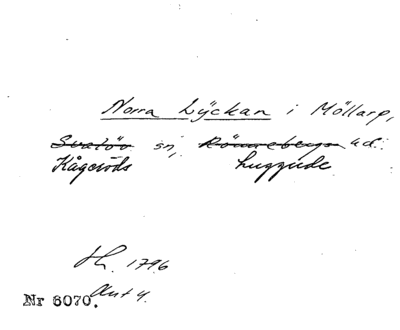 Norra Lÿckan i Möllarp,
Svalöv sn, Rönnebergs hd.
Kågeröds Luggude
H. 1796
Akt 4.
Nr 6070.